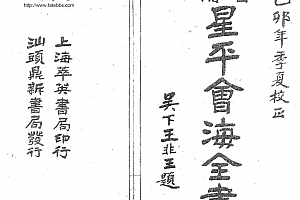 http://www.fatebbs.com
卯年季夏校正
星平會海全書
吳下王王題
上海萃英書局印行
汕頭鼎新書局發行